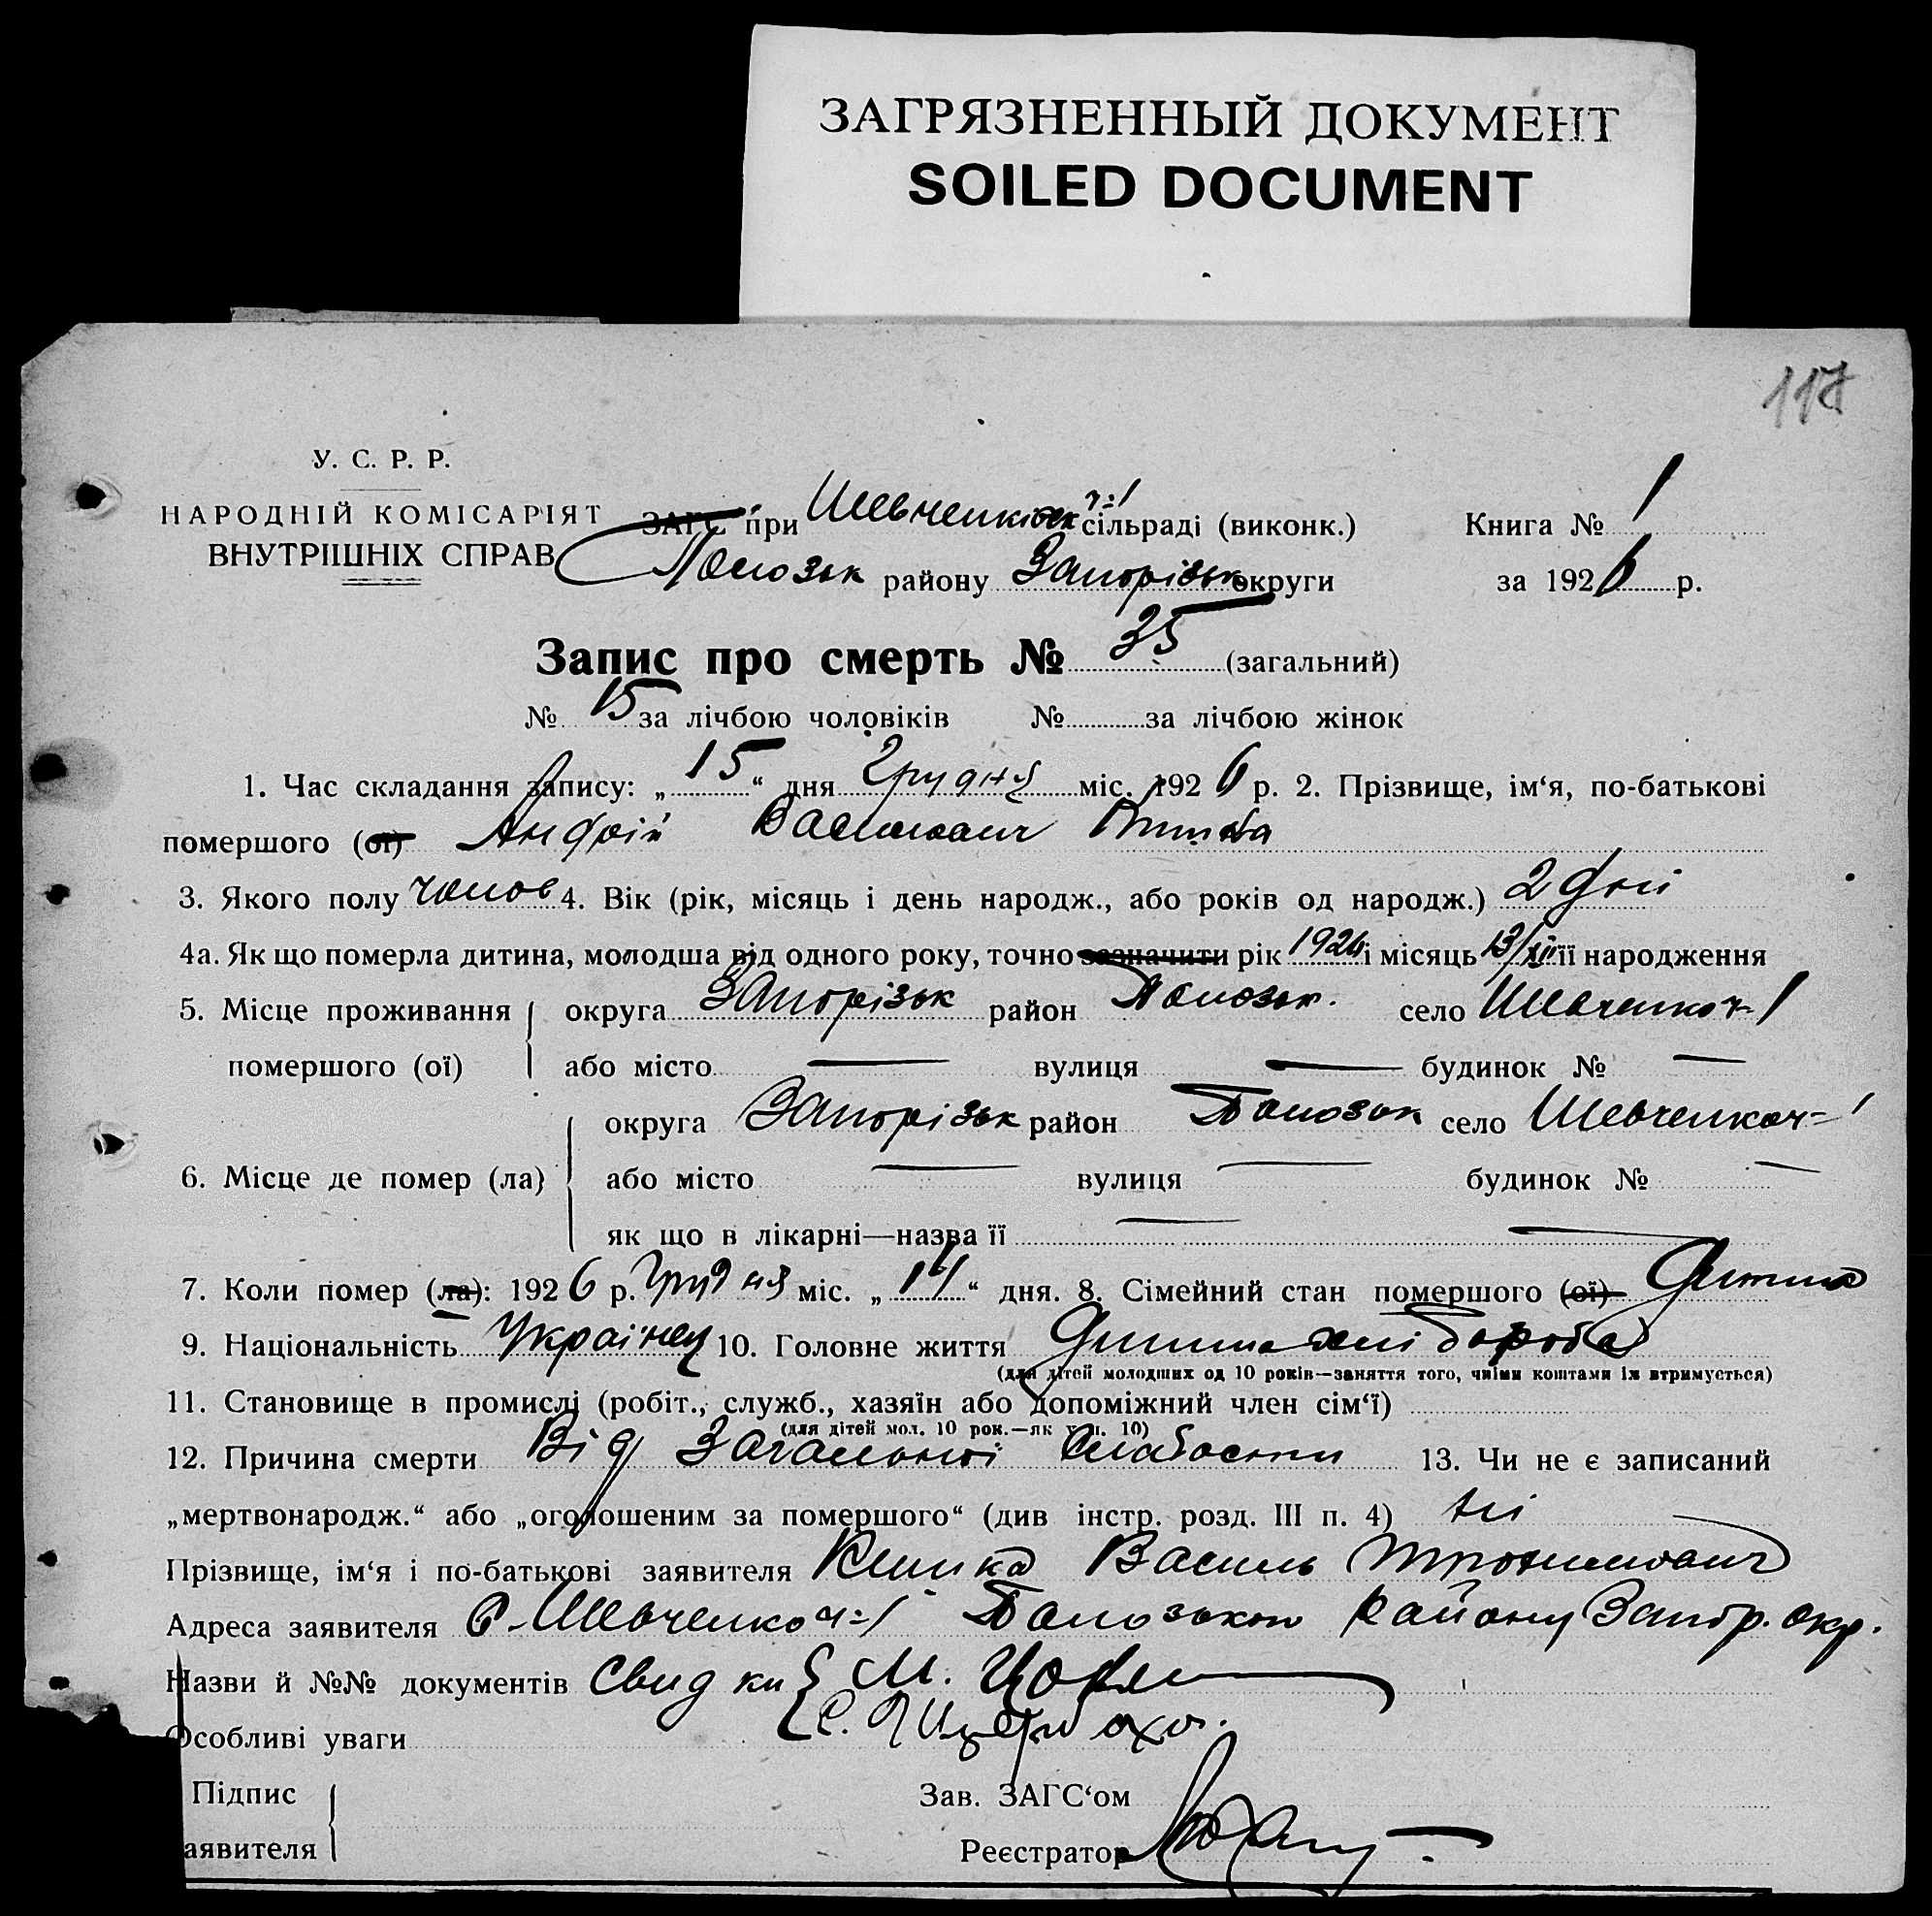 ЗАГРЯЗНЕННЫЙ ДОКУМЕНТ
SOILED DOCUMENT
117
У. С. Р. Р.
НАРОДНІЙ КОМІСАРІЯТ
ВНУТРІШНІХ СПРАВ
ЗАГС при Шевченківськ ч=1 сільраді (виконк.) Книга № 1
Полозьк району Запорізьк округи за 1926 р.
Запис про смерть № 35 (загальний)
№ 15 за лічбою чоловіків № за лічбою жінок
1. Час складання запису: „ 15 “ дня Грудня міс. 1926 р. 2. Прізвище, ім‘я, по-батькові
помершого (ої) Андрій Васильович
3. Якого полу чолов 4. Вік (рік, місяць і день народж., або років од народж.) 2 дні
4а. Як що померла дитина, молодша від одного року, точно зазначити рік 1926 і місяць 13/XII її народження
5. Місце проживання округа Запорізьк район Полозьк. село Шевченко ч-1
помершого (ої) або місто — вулиця — будинок № —
округа Запорізьк район Полозьк село Шевченко ч=1
6. Місце де помер (ла) або місто — вулиця — будинок № —
як що в лікарні—назва її — —
7. Коли помер (ла): 1926 р. Грудня міс. „ 14 “ дня. 8. Сімейний стан помершого (ої) Дитина
9. Національність Українец 10. Головне життя Дитина хлібороба
(для дітей молодших од 10 років—заняття того, чиїми коштами їх втримується)
11. Становище в промислі (робіт., служб., хазяїн або допоміжний член сім‘ї)
(для дітей мол. 10 рок.—як у п. 10)
12. Причина смерти Від Загальної Слабости 13. Чи не є записаний
„мертвонародж.“ або „оголошеним за помершого“ (див інстр. розд. III п. 4) ні
Прізвище, ім‘я і по-батькові заявителя Василь
Адреса заявителя С. Шевченко ч=1 Полозького Району Запор. окр.
Назви й №№ документів Свидки М.
С.
Особливі уваги
Підпис Зав. ЗАГС‘ом
аявителя Реєстратор